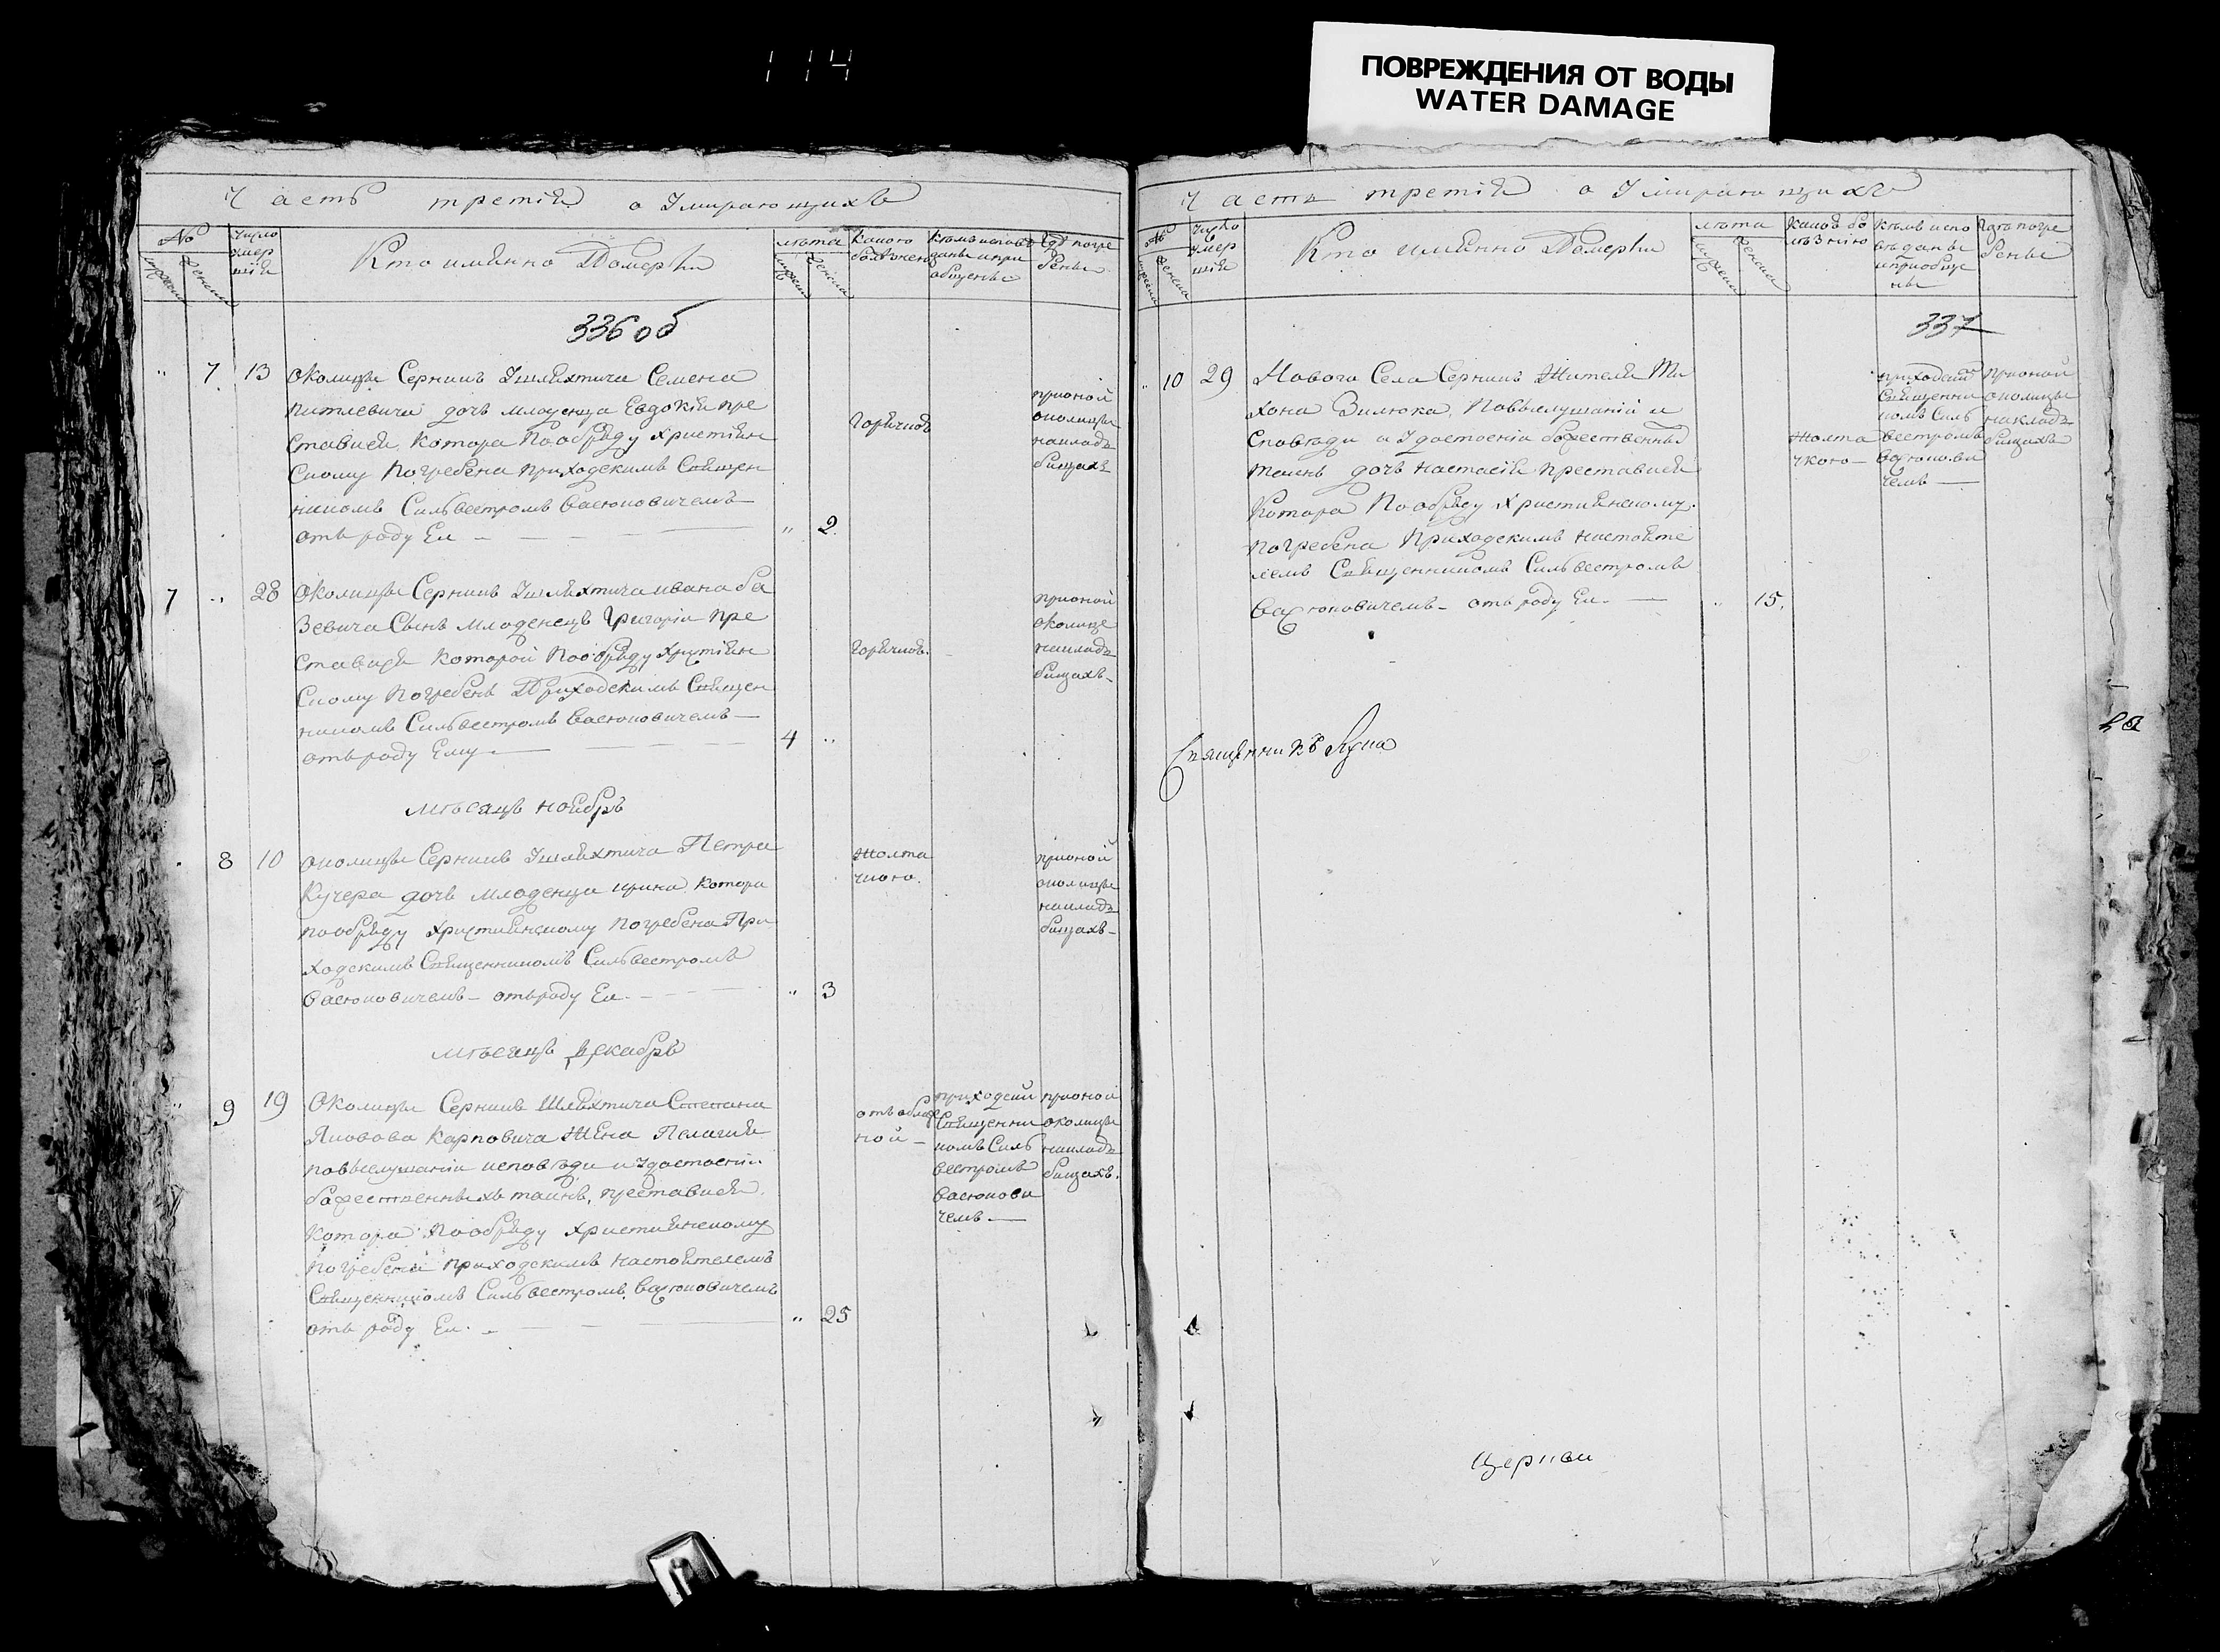 114
ПОВРЕЖДЕНИЯ ОТ ВОДЫ
WATER DAMAGE
Часть третія о Умирающихъ
№
Число умер шія
Кто имѣнно Померъ
лѣта
какою болѣзнею
кѣмъ исповѣданы и пріобщены
Гдѣ погребены
336 об
" 7 13 Околицы Серникъ Ушляхтича Семена
дочь младенца Евдокія пре
ставися, котора По обряду Христіян
скому погребена приходскимъ Священ
никомъ Сильвестромъ Васюковичемъ
отъ роду Ея " 2
Горячкою
при оной
околицы
на клад
бищахъ
7 " 28 Околицы Серникъ Ушляхтича Ивана Ба
зевича Сынъ младенецъ Григорій пре
ставися которой По обряду Христіян
скому погребенъ Приходскимъ Священ
никомъ Сильвестромъ Васюковичемъ
отъ роду Ему 4 "
Горячкою.
при оной
околице
на клад
бищахъ
Мѣсяцъ Ноябрь
8 10 околицы Серникъ Ушляхтича Петра
Кучера дочь младенца Ирина котора
по обряду Християнскому погребена При
ходскимъ Священникомъ Сильвестромъ
Васюковичемъ отъ роду Ея " 3
Жолта
чкою.
при оной
околицы
на клад
бищахъ
Мѣсяцъ Декабрь
" 9 19 Околицы Серникъ Шляхтича Степана
Карповича Жена Пелагия
по выслушаніи исповѣди и удостоеніи
божественныхъ таинъ, преставися,
котора По обряду Християнскому
погребена приходскимъ настоятелемъ
Священникомъ Сильвестромъ Васюковичемъ
отъ роду Ея. " 25
приходским
Священни
комъ Силь
вестромъ
Васюкови
чемъ
при оной
околицы
на клад
бищахъ.
Часть третія о Умирающихъ
№
Число умер шія
Кто имѣнно Померъ
лѣта
Какою болѣзнію
кѣмъ исповѣданы и приобщены
Гдѣ погребены
337
" 10 29 Нового Села Серникъ Жителя Ти
хона Вилюка, По выслушаній и
споведи и Удостоенія божественны
таинъ дочь Настасія преставися
Котора По обряду Християнскому
погребена Приходскимъ Настояте
лемъ Священникомъ Сильвестромъ
Васюковичемъ отъ роду Ея. " 15.
Жолта
чкою
приходским
Священни
комъ Силь
вестромъ
Васюкови
чемъ
при оной
околицы
на клад
бищахъ
Священникъ
Церкви